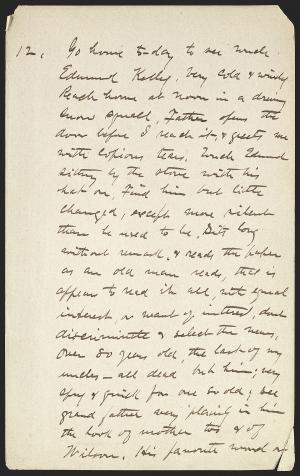 12. Go home to-day to see uncle
Edmund Kelly. Very cold & windy
Reach home at noon in a driving
snow squall. Father opens the
door before I reach it & greets me
with copious tears. Uncle Edmund
sitting by the stove with his
hat on. Find him but little
changed, except more silent
than he used to be. Sits long
without remark, & reads the paper
as an old man reads, that is
appear to read it all, with equal
interest, or want of interest, dont
discriminate & select the news,
Over 80 years old, the last of my
uncles – all dead but him; very
spry & quick for one so old; see
grand father very plainly in him
the look of mother too & of
Wilson. His favorite word is